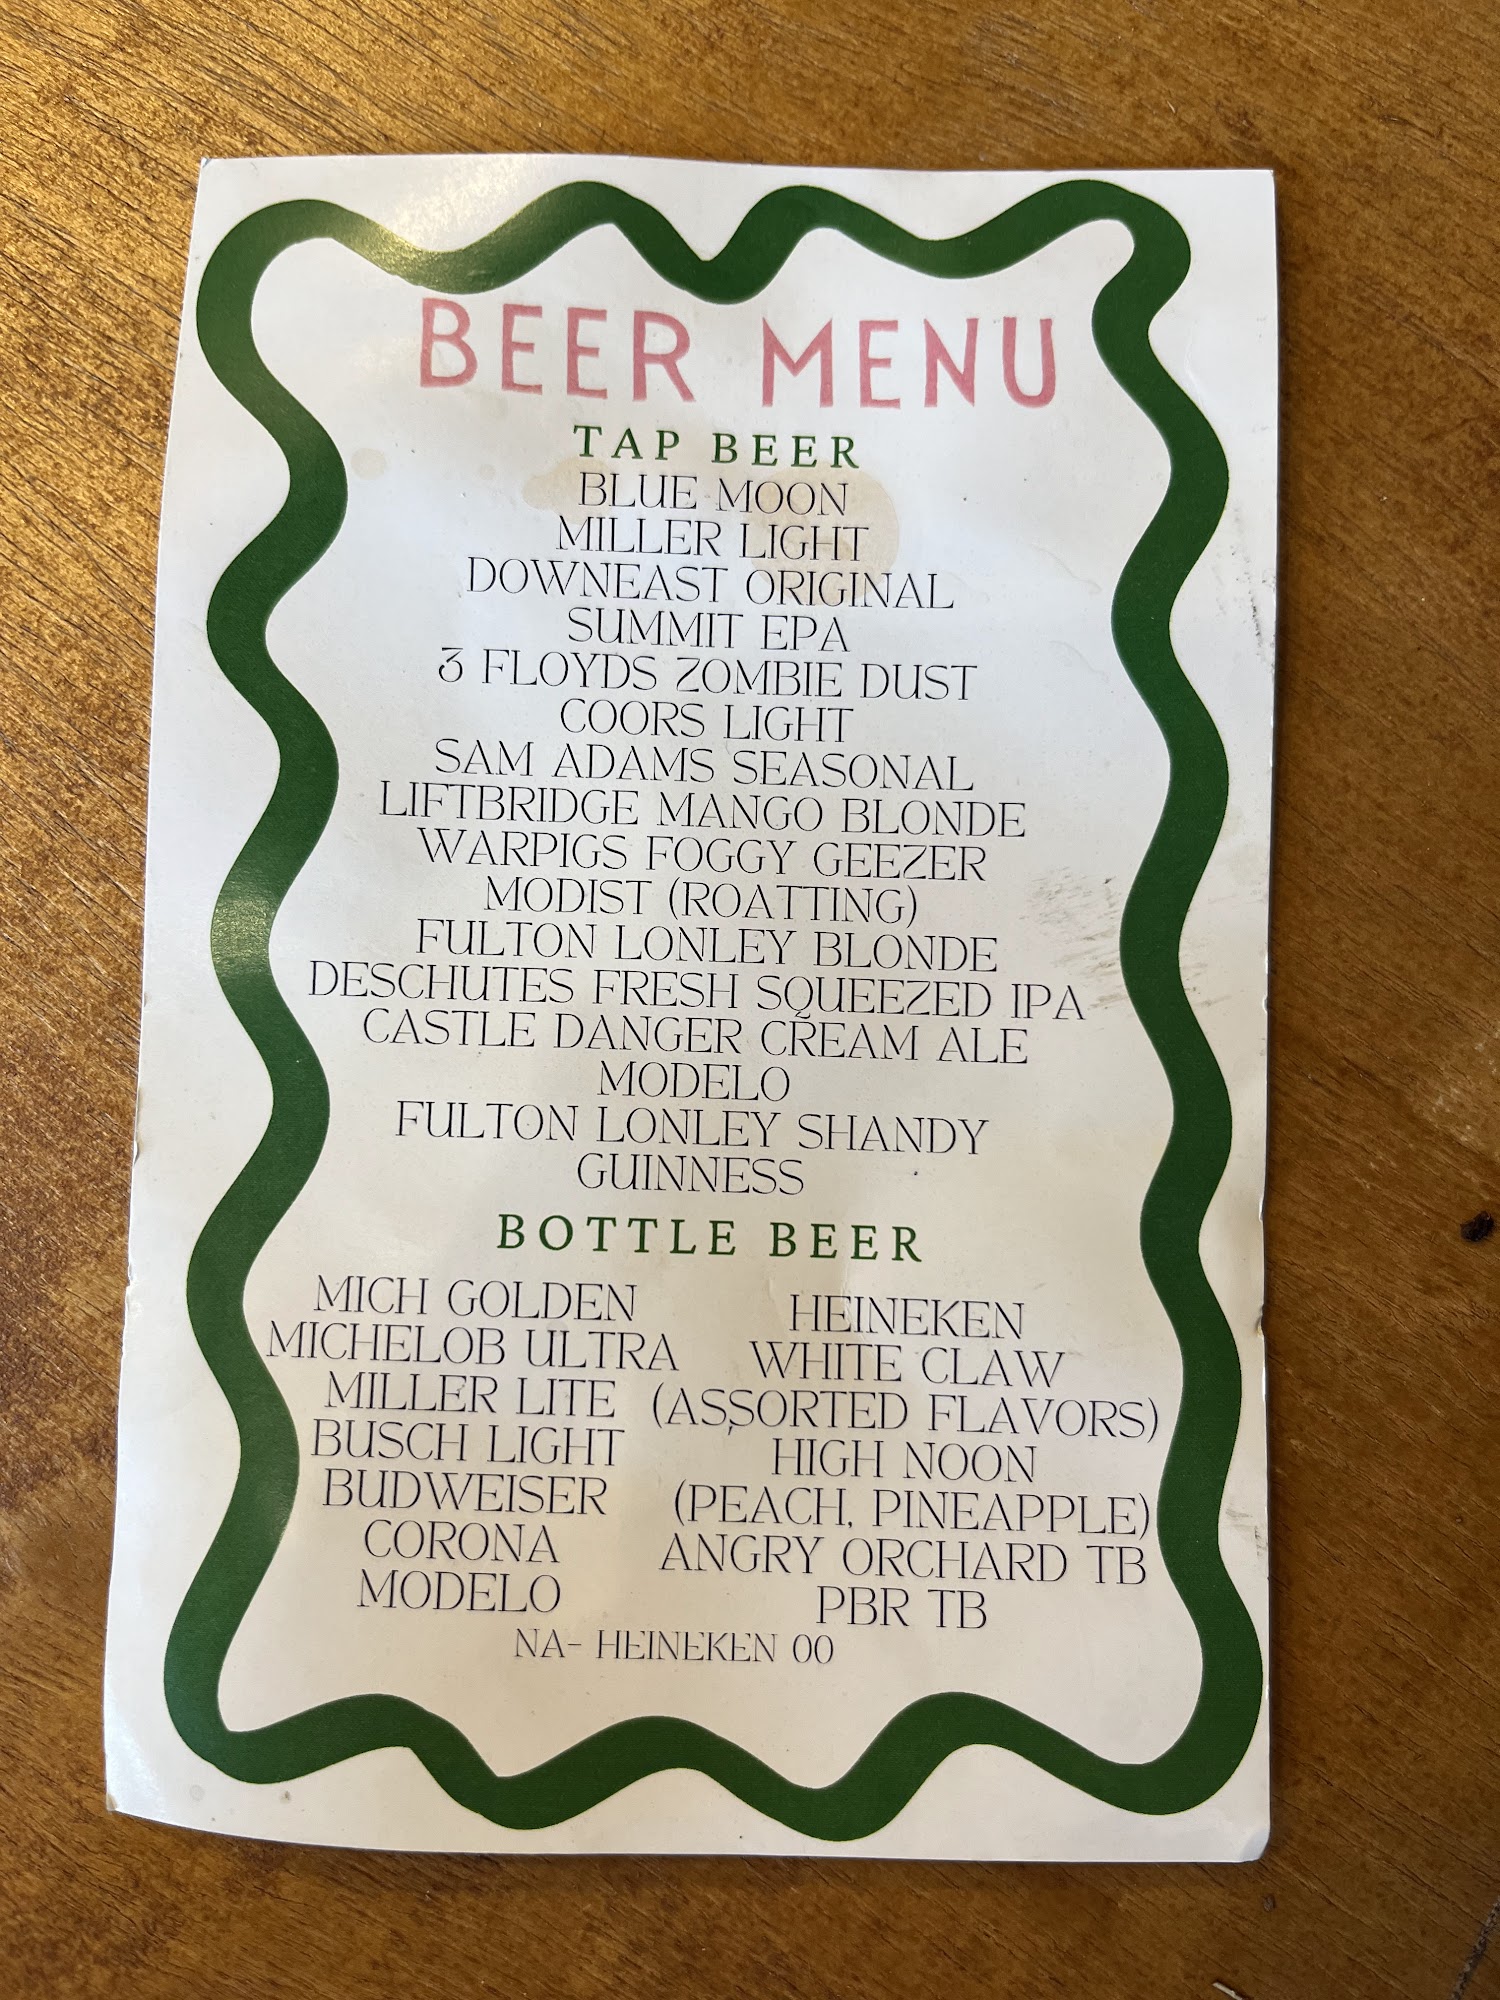 BEER MENU
TAP BEER
BLUE MOON
MILLER LIGHT
DOWNEAST ORIGINAL
SUMMIT EPA
3 FLOYDS ZOMBIE DUST
COORS LIGHT
SAM ADAMS SEASONAL
LIFTBRIDGE MANGO BLONDE
WARPIGS FOGGY GEEZER
MODIST (ROATTING)
FULTON LONLEY BLONDE
DESCHUTES FRESH SQUEEZED IPA
CASTLE DANGER CREAM ALE
MODELO
FULTON LONLEY SHANDY
GUINNESS
BOTTLE BEER
MICH GOLDEN
MICHELOB ULTRA
MILLER LITE
BUSCH LIGHT
BUDWEISER
CORONA
MODELO
HEINEKEN
WHITE CLAW
(ASSORTED FLAVORS)
HIGH NOON
(PEACH, PINEAPPLE)
ANGRY ORCHARD TB
PBR TB
NA- HEINEKEN 00